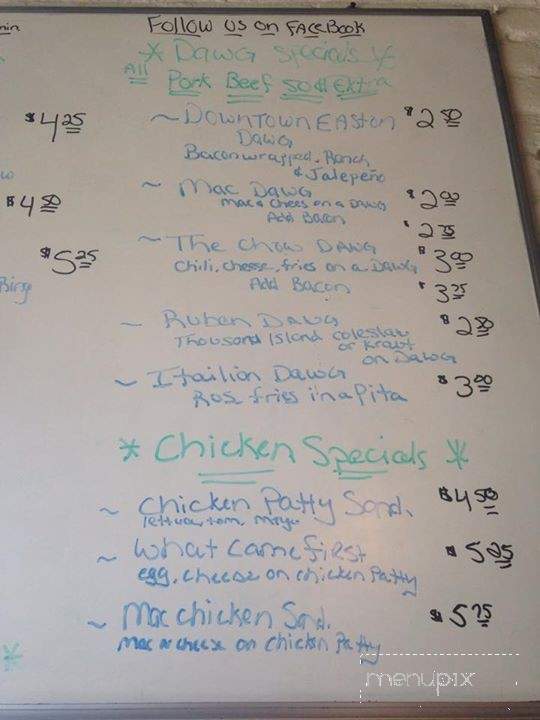 min
Follow us on FaceBook
* Dawg Specials *
All Pork Beef 50¢ Extra
$4 25
~ Downtown Easton $2 50
Dawg
Bacon wrapped, Ranch
& Jalepeño
w
$4 50
~ Mac Dawg $2 00
Mac & Chees on a Dawg
Add Bacon $2 75
$5 25
~ The Chow Dawg $3 00
Chili, cheese, fries on a Dawg
Add Bacon $3 75
~ Ruben Dawg $2 50
Thousand Island coleslaw
or kraut
on Dawg
~ Itailion Dawg $3 00
fries in a Pita
* Chicken Specials *
~ Chicken Patty Sand. $4 50
lettuce, tom, mayo
~ What came first $5 25
egg, cheese on chicken Patty
~ Mac chicken Sand. $5 75
mac n cheese on chicken Patty
*
menupix